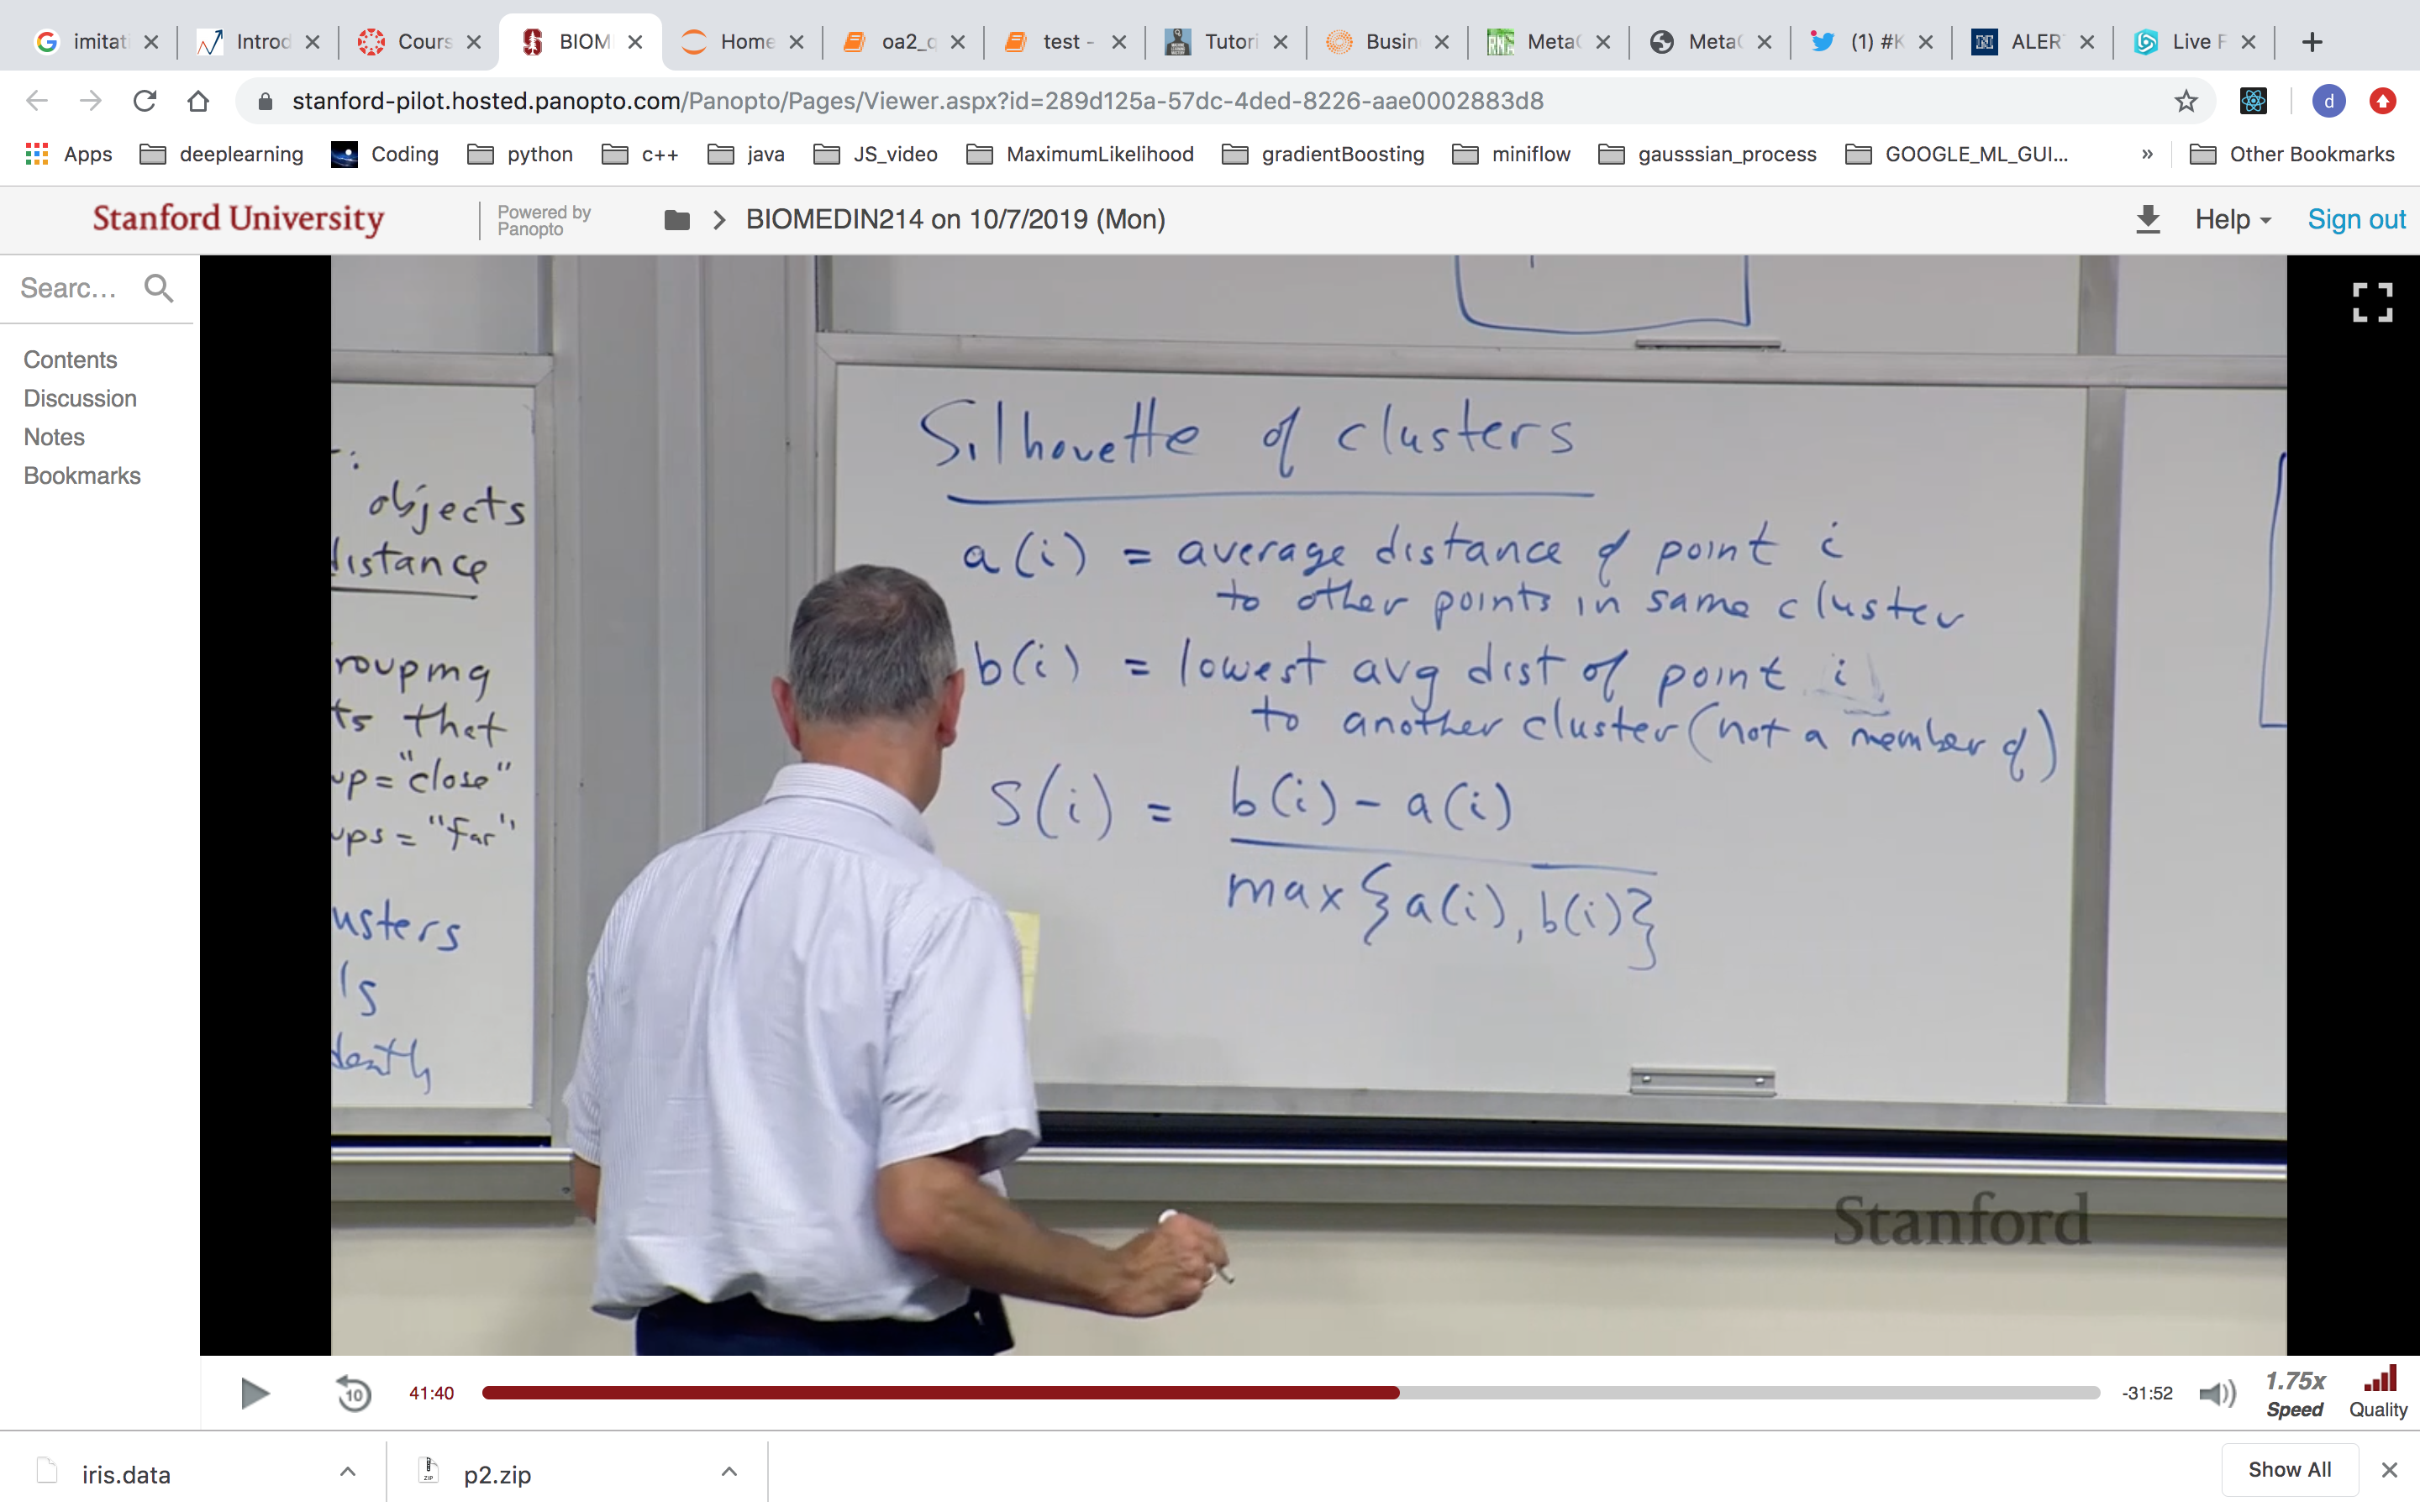 imitat
Introd
Cours
BIOM
Home
oa2_c
test -
Tutori
Busin
Meta
Meta
(1) #K
ALER
Live F
stanford-pilot.hosted.panopto.com/Panopto/Pages/Viewer.aspx?id=289d125a-57dc-4ded-8226-aae0002883d8
d
Apps deeplearning Coding python c++ java JS_video MaximumLikelihood gradientBoosting miniflow gausssian_process GOOGLE_ML_GUI... » Other Bookmarks
Stanford University
Powered by
Panopto
BIOMEDIN214 on 10/7/2019 (Mon)
Help
Sign out
Searc...
Contents
Discussion
Notes
Bookmarks
objects
distance
rouping
ts that
up = "close"
ups = "far"
usters
ls
death
Silhouette of clusters
a(i) = average distance of point i
to other points in same cluster
b(i) = lowest avg dist of point i
to another cluster (not a member of)
S(i) = b(i) - a(i)
max {a(i), b(i)}
Stanford
10
41:40
-31:52
1.75x
Speed
Quality
iris.data
p2.zip
Show All